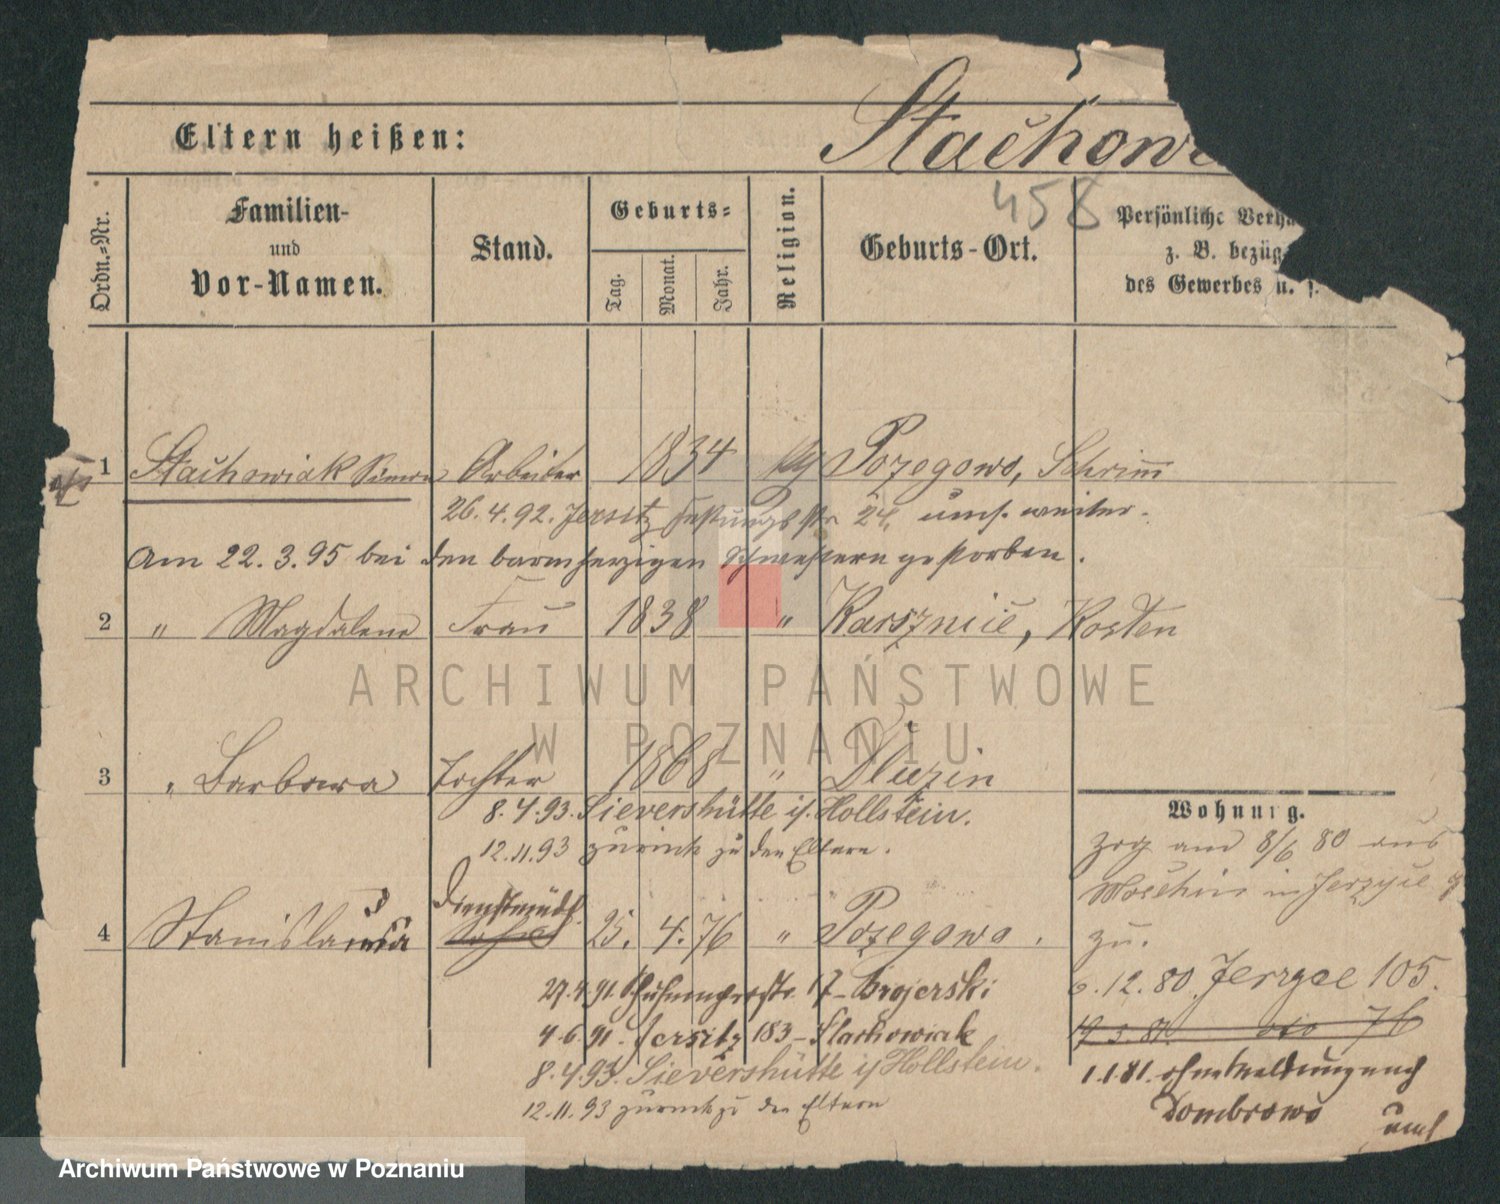 Eltern heißen:
Stachow
458
Ordn.-Nr.
Familien-
und
Vor-Namen.
Stand.
Geburts-
Tag.
Monat.
Jahr.
Religion.
Geburts-Ort.
Persönliche Verhä
z. B. bezüg
des Gewerbes u. s.
1 Stachowiak Simon Arbeiter 1834 kg Pozegowo, Schrimm
26. 4. 92. Jersitz Festungsstr 24, ums. weiter.
Am 22. 3. 95 bei den barmherzigen Schwestern gestorben.
2 " Magdalena Frau 1838 " Karsznice, Kosten
3 " Barbara Tochter 1868 " Dluzin
8. 4. 93. Sievershütte i/. Hollstein.
12. 11. 93 zurück zu den Eltern.
Wohnung.
zog am 8/6 80 aus
Moschin in Jerzyce
zu.
4 Stanislawa Dienstmädch. 25. 4. 76 " Pozegowo.
6. 12. 80 Jerzyce 105.
27. 4. 91. 17 - Brojerski
19. 3. 81. dto 76
4. 6. 91. Jersitz 183 - Stachowiak
8. 4. 93. Sievershütte i/ Hollstein.
1. 1. 81. ohne Meldung nach
12. 11. 93 zurück zu den Eltern
Dombrowo
ums
ARCHIWUM PAŃSTWOWE
W POZNANIU
Archiwum Państwowe w Poznaniu